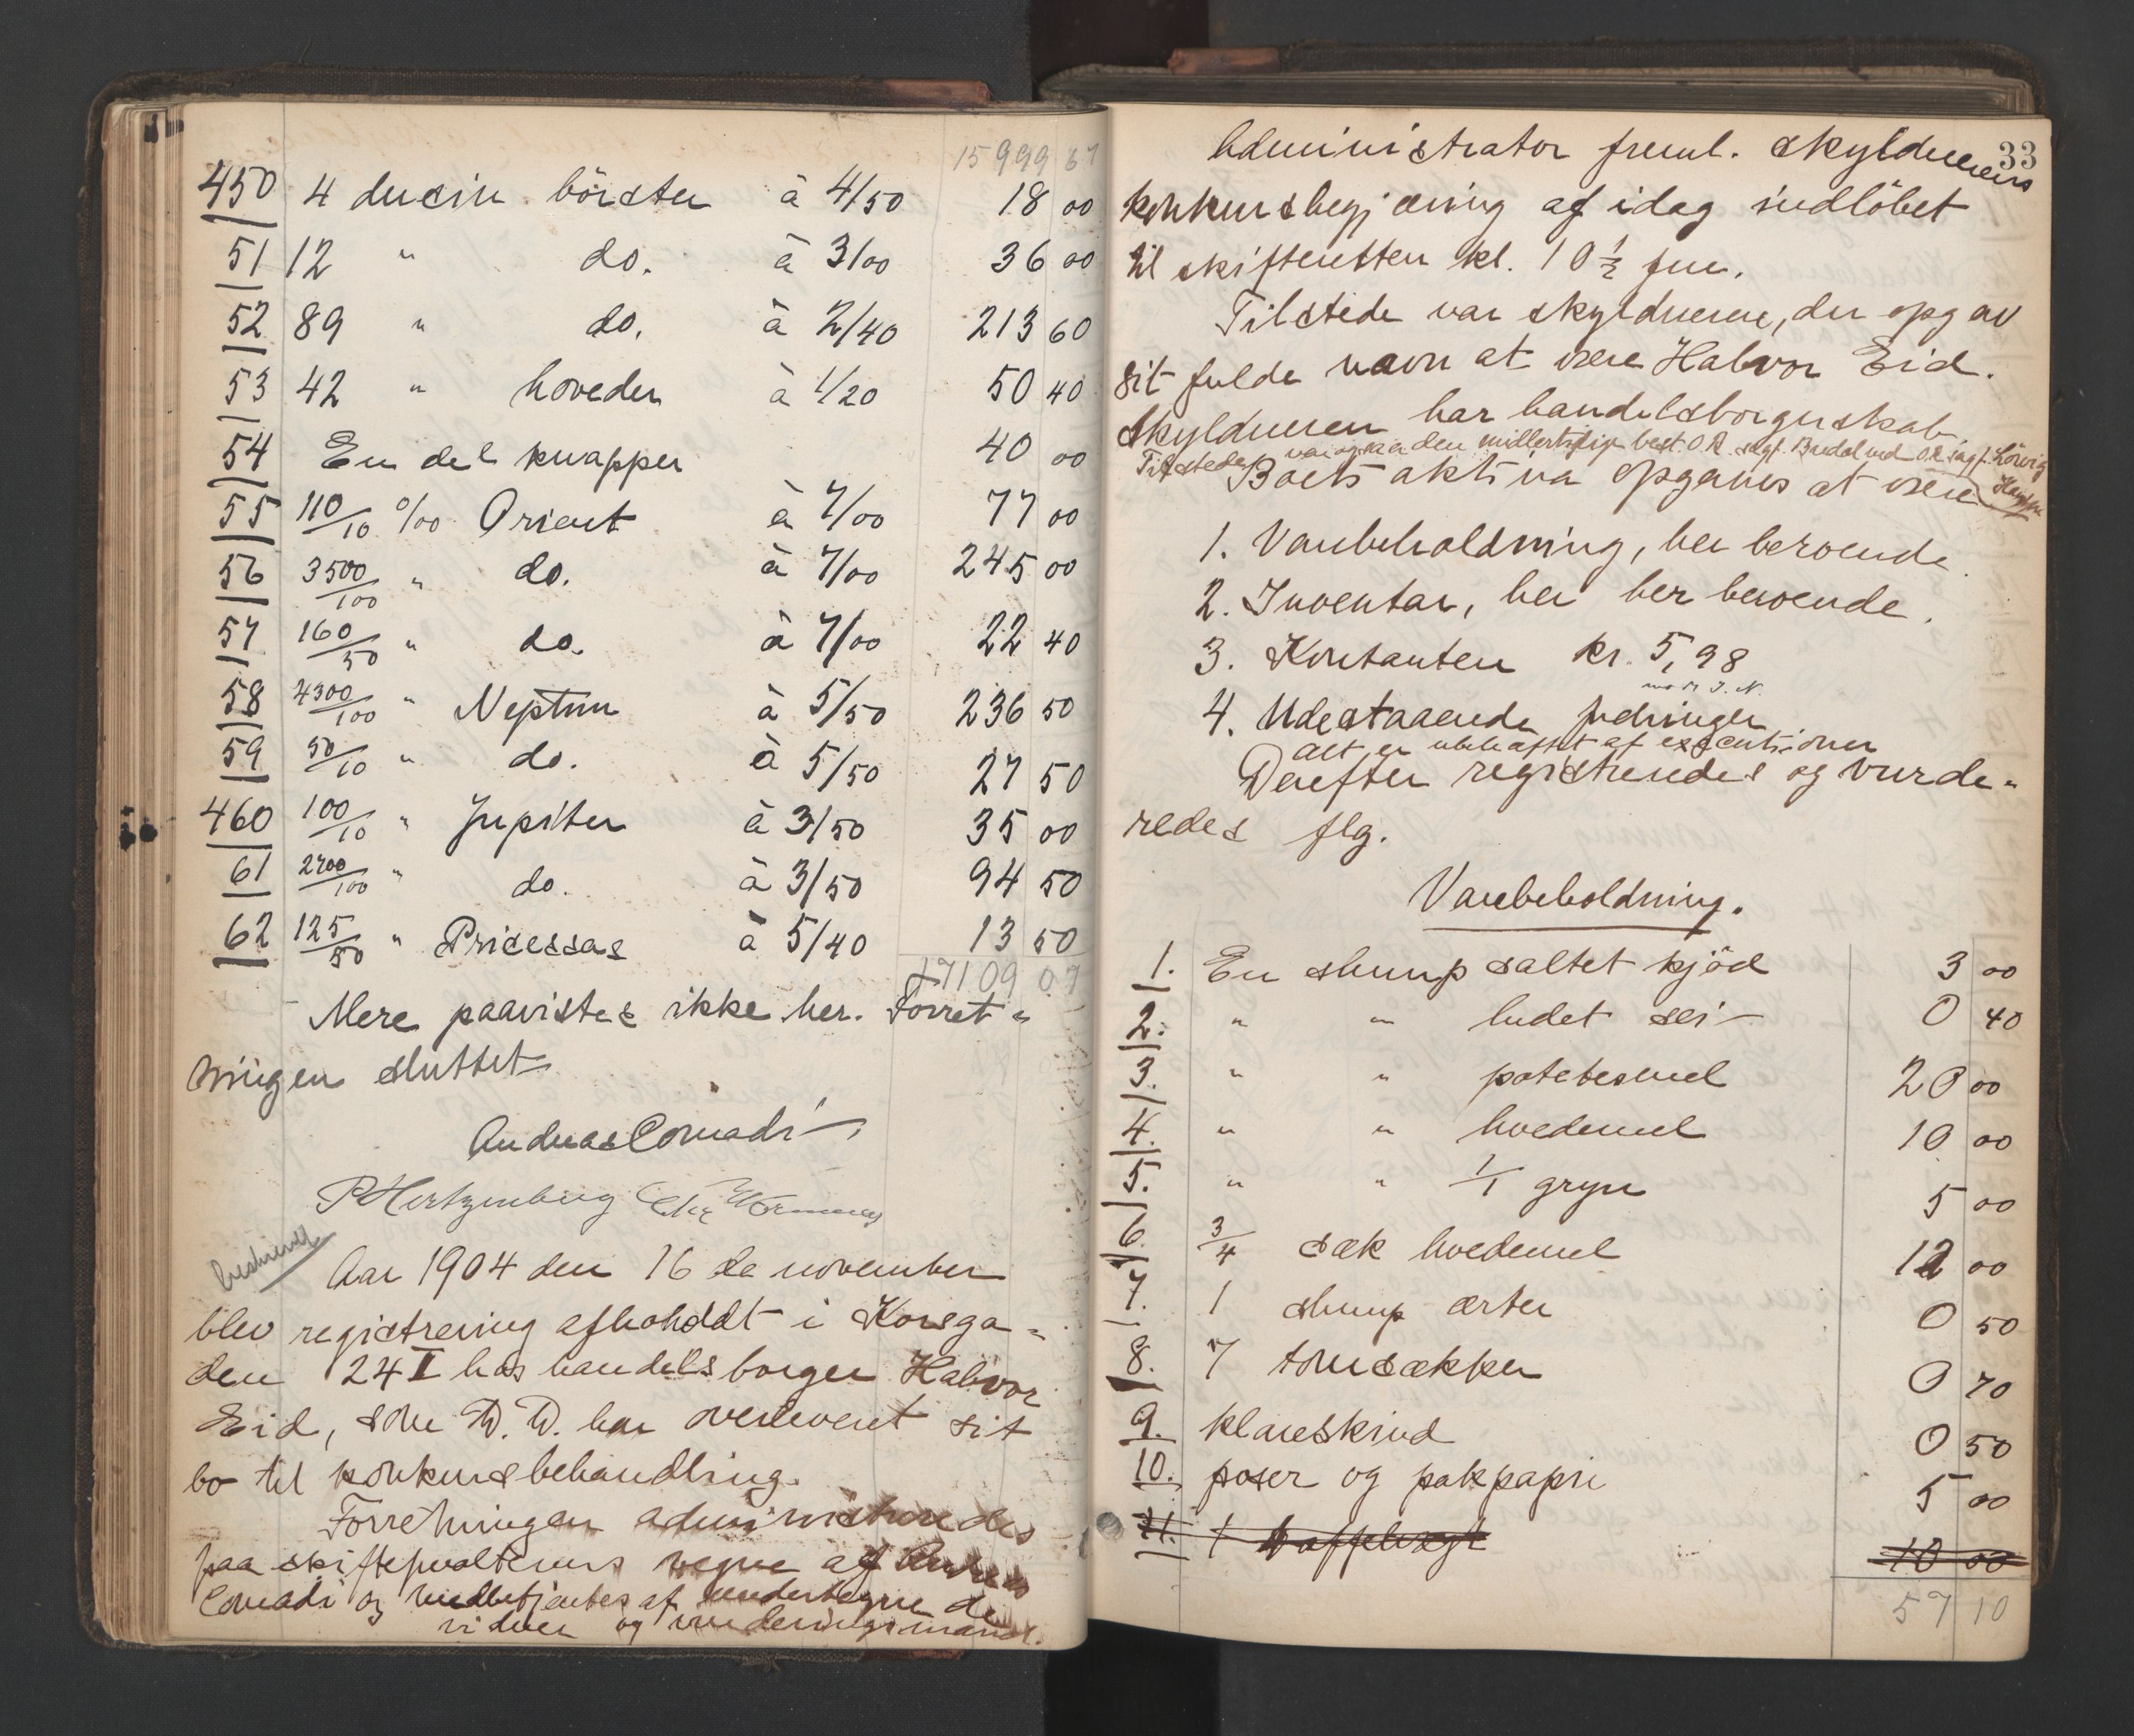 15999 67
450 4 dusin börster à 4/50 18 00
51 12 " do. à 3/00 36 00
52 89 " do. à 2/40 213 60
53 42 " hoveder à 1/20 50 40
54 En del knapper 40 00
55 110/10 %00 Orient à 7/00 77 00
56 3500/100 " do. à 7/00 245 00
57 160/50 " do. à 7/00 22 40
58 4300/100 " Neptun à 5/50 236 50
59 50/10 " do. à 5/50 27 50
460 100/10 " Jupiter à 3/50 35 00
61 2700/100 " do. à 3/50 94 50
62 125/50 " Pricessas à 5/40 13 50
17109 07
Mere paavistes ikke her. Forret-
ningen sluttet
Andreas Conradi
P Hertzenberg Chr
Aar 1904 den 16de november
blev registrering afholddt i Korsga-
den 24 I hos handelsborger Halvor
Eid, som D. D. har overleveret sit
bo til konkursbehandling.
Forretningen administreredes
paa skifteforvalterens vegne af Andreas
Conradi og medbetjentes af undertegnede
vidner og vurderingsmænd.
33
Administrator freml. skyldnerens
konkursbegjæring af idag indlöbet
til skifteretten kl. 10 1/2 fm.
Tilstede var skyldneren, der opgav
sit fulde navn at være Halvor Eid.
Skyldneren har handelsborgerskab
Tilstede var ogsaa den midlertidige best. O.R. sagf. Bredal ved O.R. sagf. Lövig
Boets aktiva opgaves at være
1. Varebeholdning, her beroende.
2. Inventar, her beroende.
3. Kontanter kr. 5,98
4. Udestaaende fordringer
Alt er ubehæftet af executioner
Derefter registreredes og vurde-
redes flg.
Varebeholdning.
1. En slump saltet kjöd 3 00
2. " " ludet sei 0 40
3. " " potetesmel 20 00
4. " " hvedemel 10 00
5. " " 1/1 gryn 5 00
6. 3/4 sæk hvedemel 12 00
7. 1 slump ærter 0 50
8. 7 tomsækker 0 70
9. klareskind 0 50
10. poser og pakpapir 5 00
11. 1 kaffelvægt 10 00
57 10